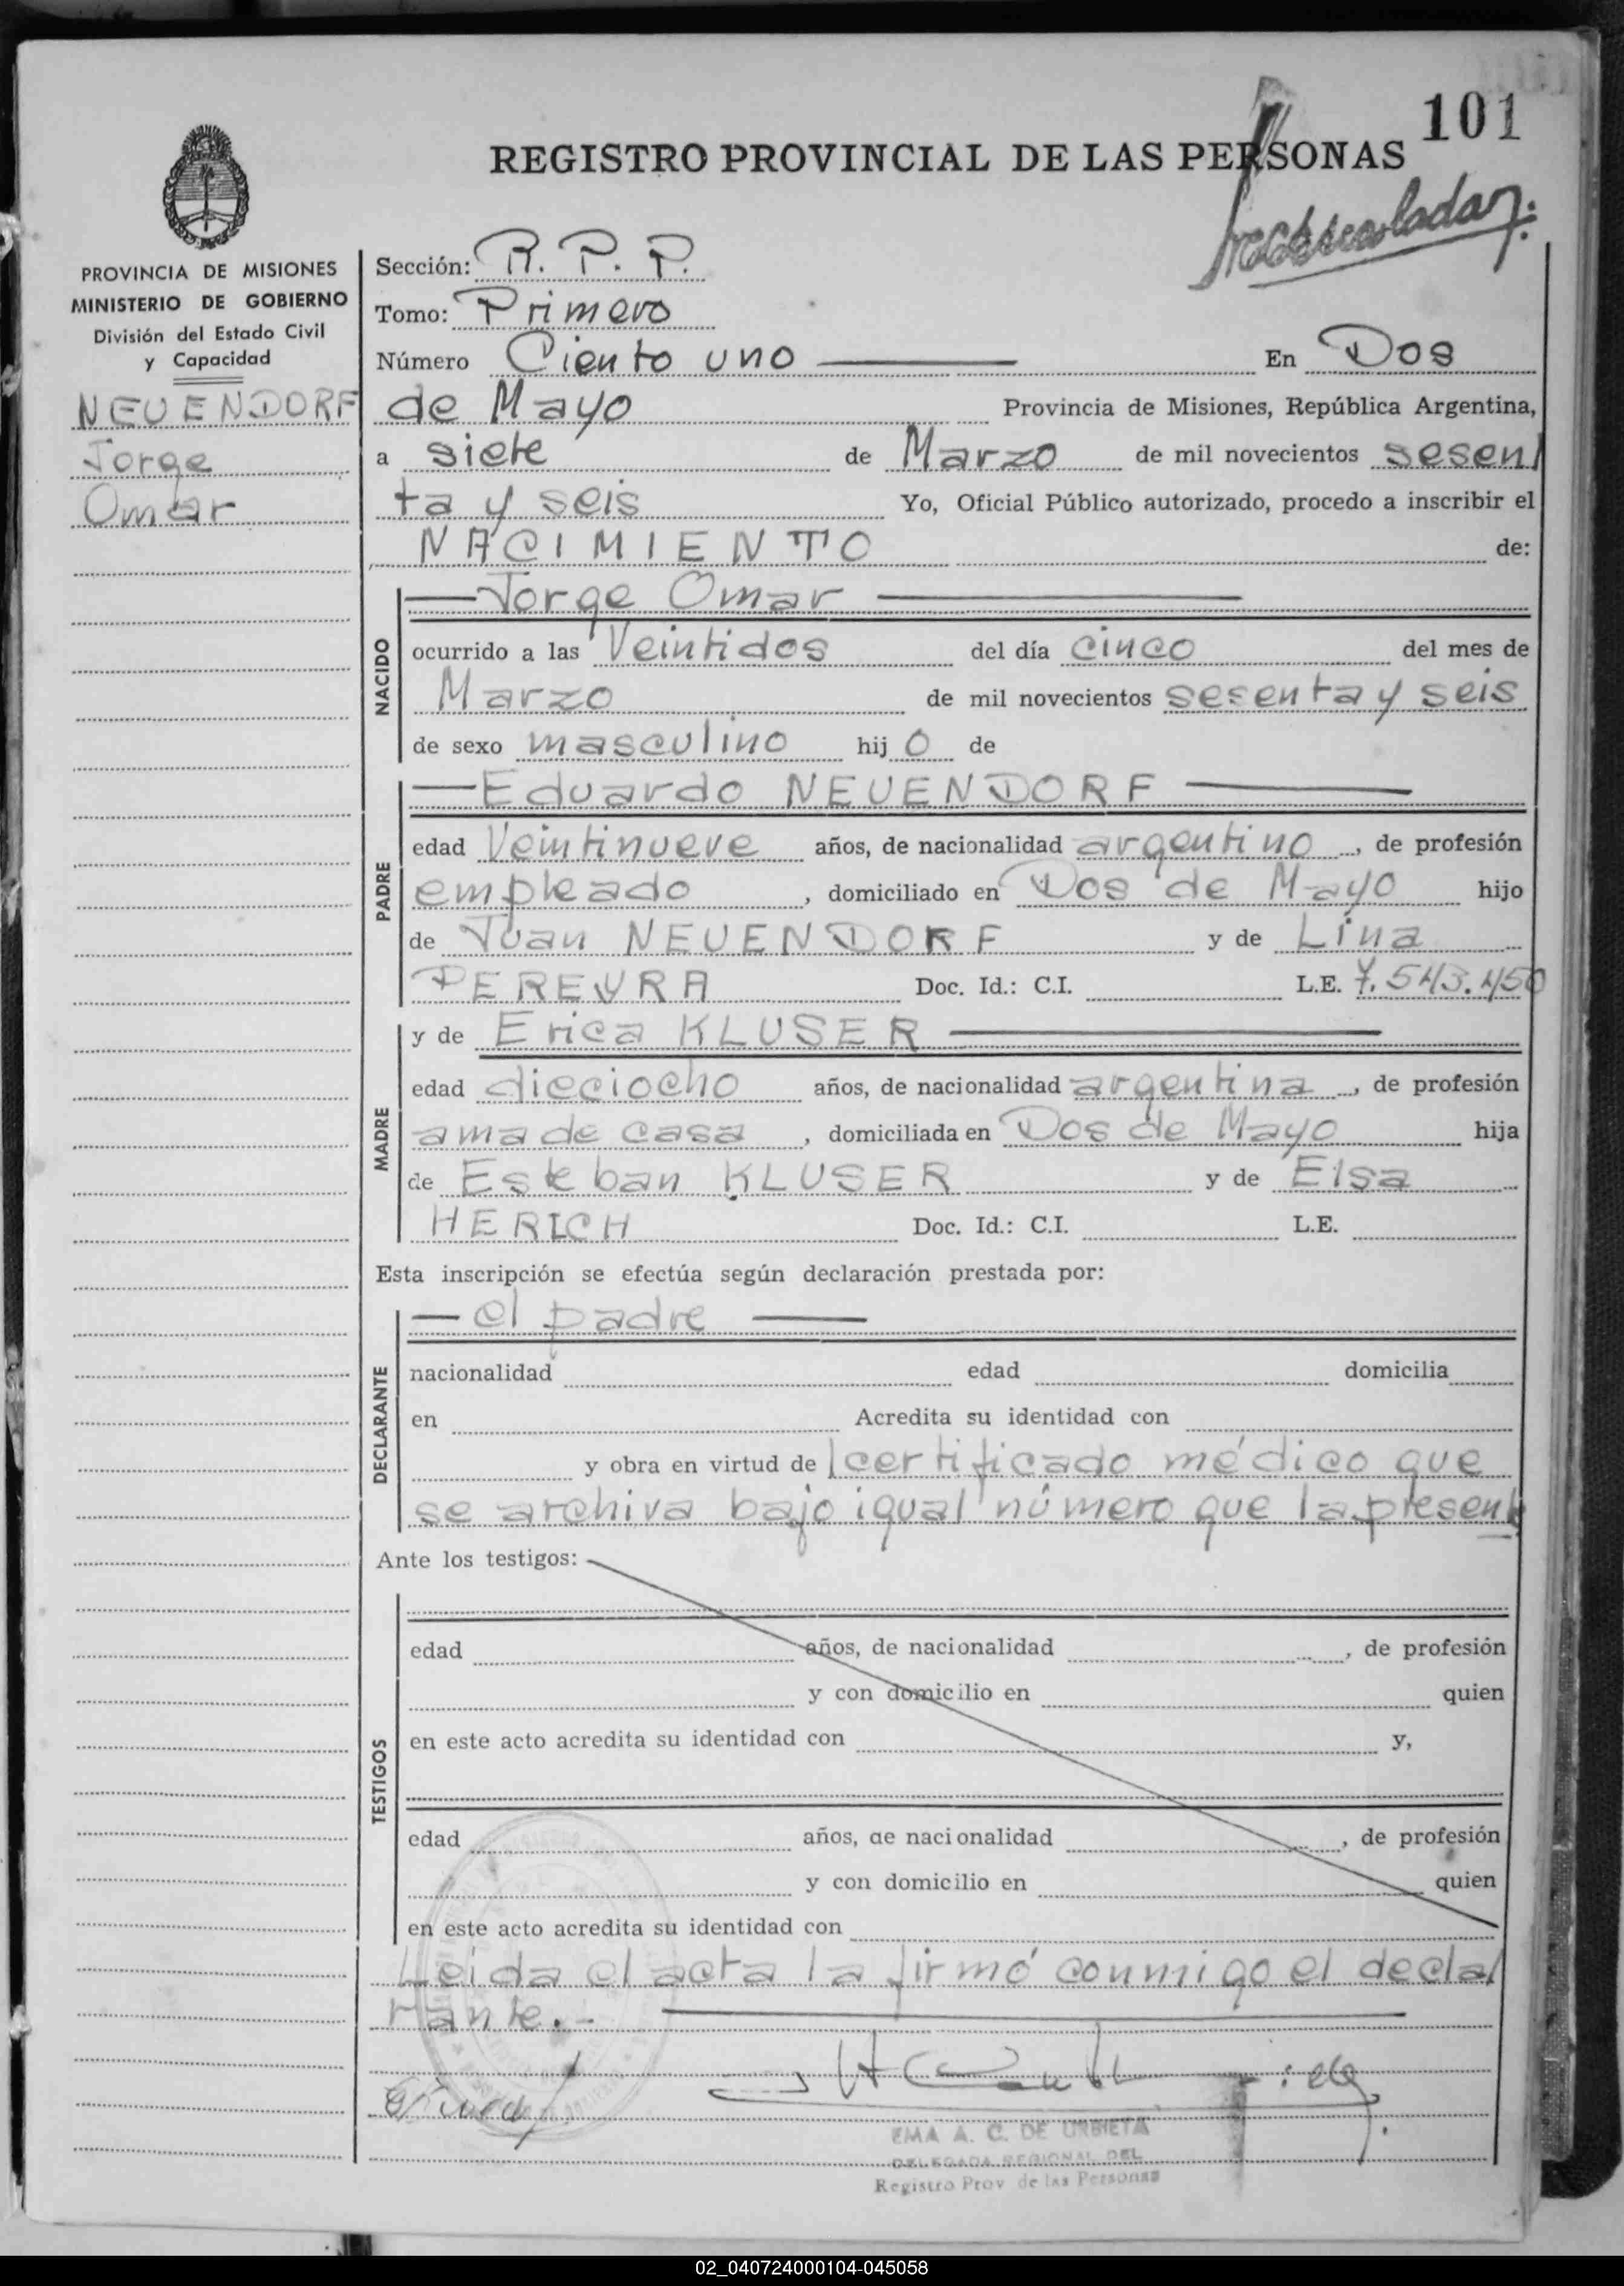 101
REGISTRO PROVINCIAL DE LAS PERSONAS
PROVINCIA DE MISIONES
MINISTERIO DE GOBIERNO
División del Estado Civil
y Capacidad
NEUENDORF
Jorge
Omar
Sección: R. P. P.
Tomo: Primero
Número Ciento uno En Dos
de Mayo Provincia de Misiones, República Argentina,
a siete de Marzo de mil novecientos sesen
ta y seis Yo, Oficial Público autorizado, procedo a inscribir el
NACIMIENTO de:
NACIDO
Jorge Omar
ocurrido a las Veintidos del día cinco del mes de
Marzo de mil novecientos sesenta y seis
de sexo masculino hijo de
PADRE
Eduardo NEUENDORF
edad Veintinueve años, de nacionalidad argentino, de profesión
empleado, domiciliado en Dos de Mayo hijo
de Juan NEUENDORF y de Lina
PEREYRA Doc. Id.: C.I. L.E. 7.543.450
MADRE
y de Erica KLUSER
edad dieciocho años, de nacionalidad argentina, de profesión
ama de casa, domiciliada en Dos de Mayo hija
de Esteban KLUSER y de Elsa
HERICH Doc. Id.: C.I. L.E.
Esta inscripción se efectúa según declaración prestada por:
DECLARANTE
el padre
nacionalidad edad domicilia
en Acredita su identidad con
y obra en virtud de certificado médico que
se archiva bajo igual número que la present
Ante los testigos:
TESTIGOS
edad años, de nacionalidad, de profesión
y con domicilio en quien
en este acto acredita su identidad con y,
edad años, de nacionalidad, de profesión
y con domicilio en quien
en este acto acredita su identidad con
Leida el acta la firmó conmigo el decla
rante.-
EMA A. C. DE URBIETA
DELEGADA REGIONAL DEL
Registro Prov de las Personas
02_040724000104-045058